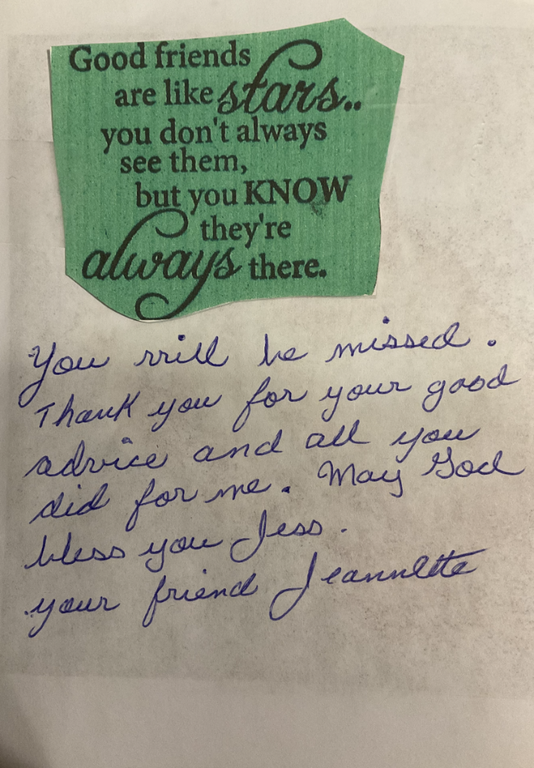 Good friends
are like stars..
you don't always
see them,
but you KNOW
they're
always there.
You will be missed.
Thank you for your good
advice and all you
did for me. May God
bless you Jess.
your friend Jeannette